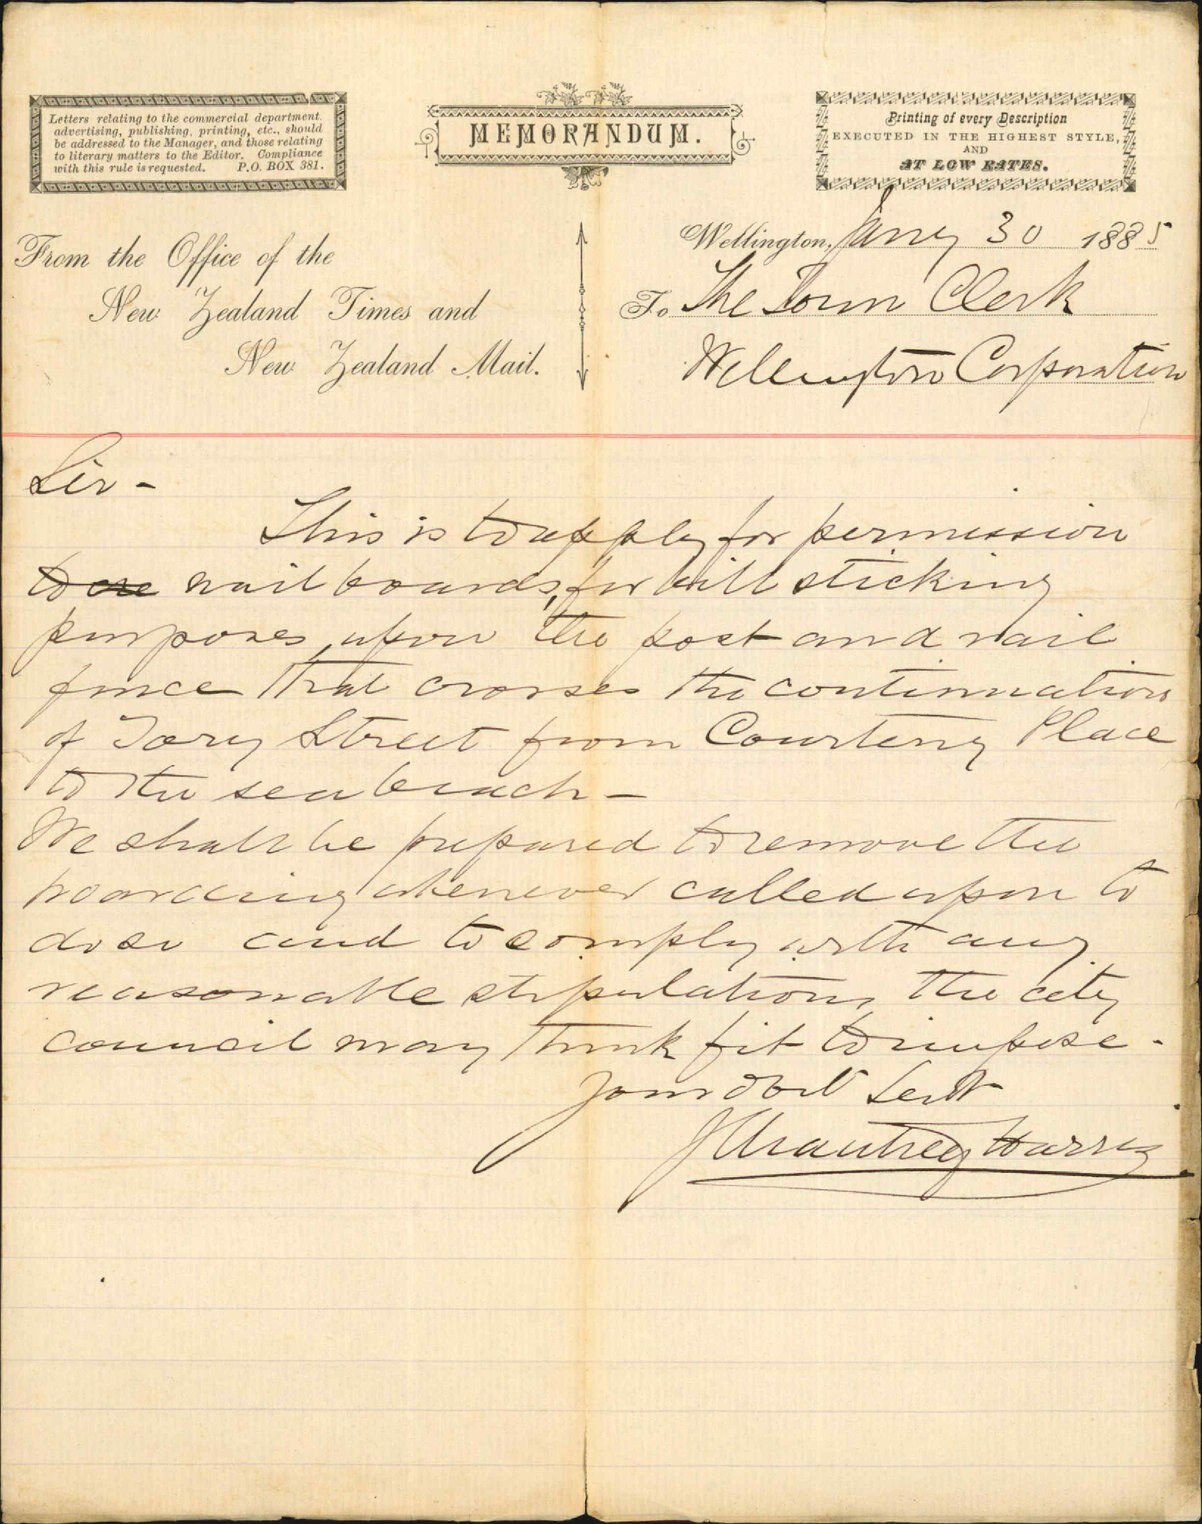 Letters relating to the commercial department,
advertising, publishing, printing, etc., should
be addressed to the Manager, and those relating
to literary matters to the Editor. Compliance
with this rule is requested. P.O. BOX 381.
MEMORANDUM.
Printing of every Description
EXECUTED IN THE HIGHEST STYLE,
AND
AT LOW RATES.
From the Office of the
New Zealand Times and
New Zealand Mail.
Wellington, Jany 30 1885
To The Town Clerk
Wellington Corporation
Sir -
This is to apply for permission
to nail boards, for bill sticking
purposes, upon the post and rail
fence that crosses the continuation
of Tory Street from Courteny Place
to the sea beach -
We shall be prepared to remove the
boarding whenever called upon to
do so and to comply with any
reasonable stipulations the city
council may think fit to impose -
Your Obdt Servt
J Chantrey Harris